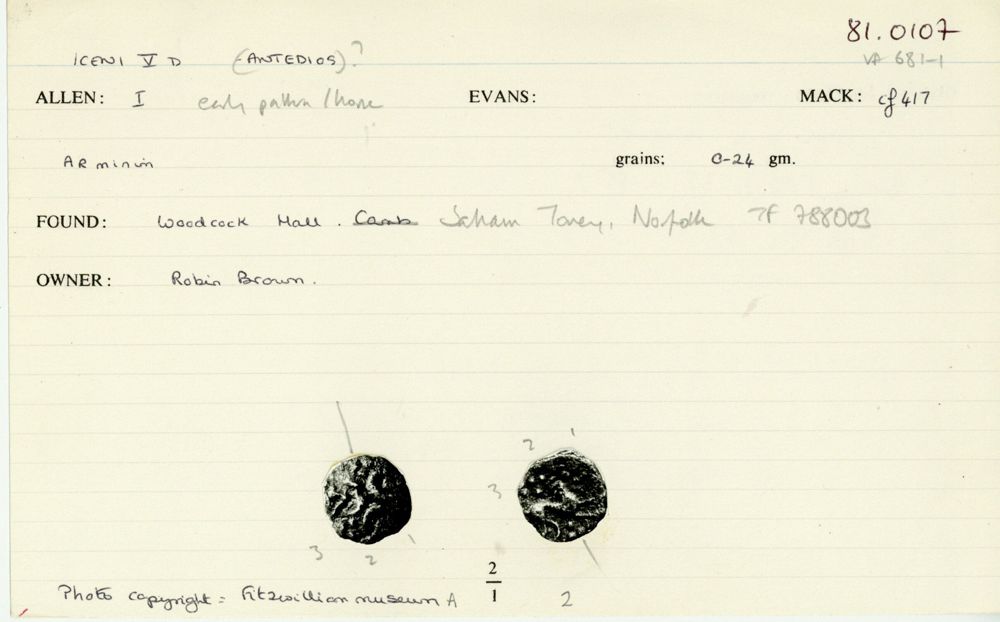 81.0107
ICENI V D (ANTEDIOS)? VA 681-1
ALLEN: I early pattern/horse EVANS: MACK: cf 417
AR minim grains: 0-24 gm.
FOUND: Woodcock Hall. Camb Saham Toney, Norfolk TF 788003
OWNER: Robin Brown.
2 1
3
3 2 1
2
1
Photo copyright = Fitzwilliam museum A 2